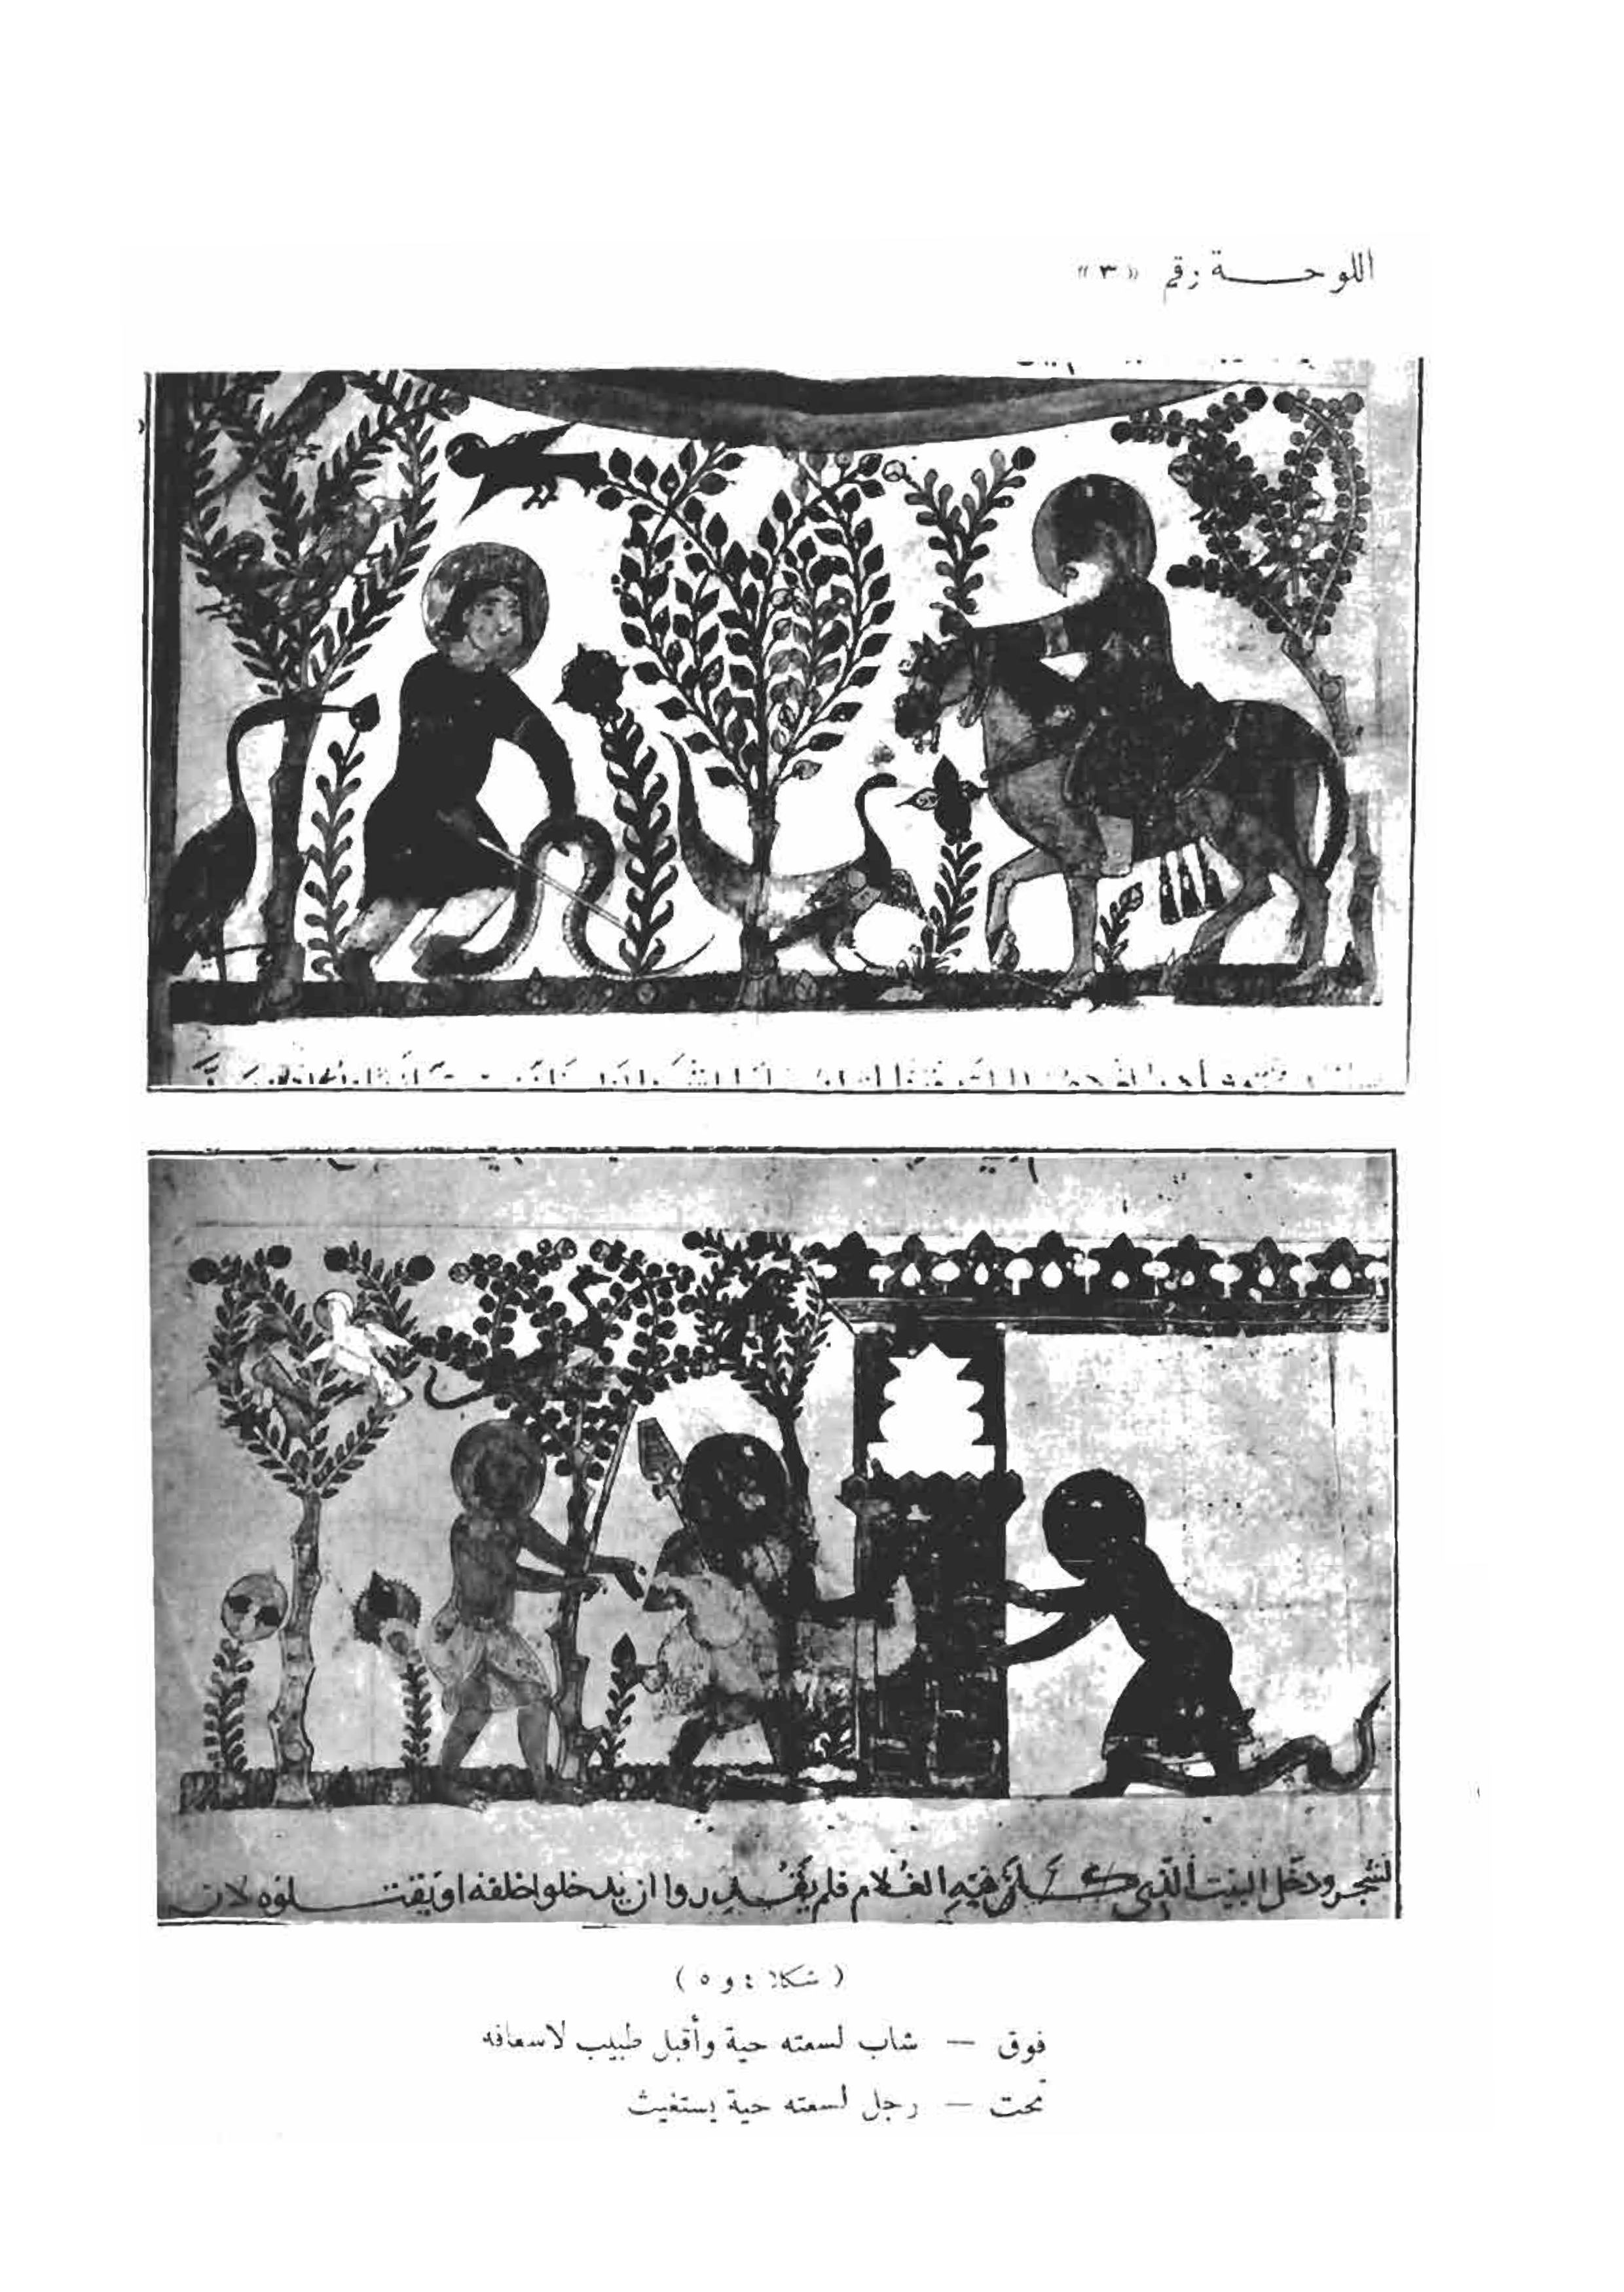 اللوحة رقم «٣»
الشجر ودخل البيت الذي كان فيه الغلام فلم يقدروا ان يدخلوا خلفه او يقتلوه لان
(شكلا ٤ و ٥)
فوق — شاب لسعته حية وأقبل طبيب لاسعافه
تحت — رجل لسعته حية يستغيث